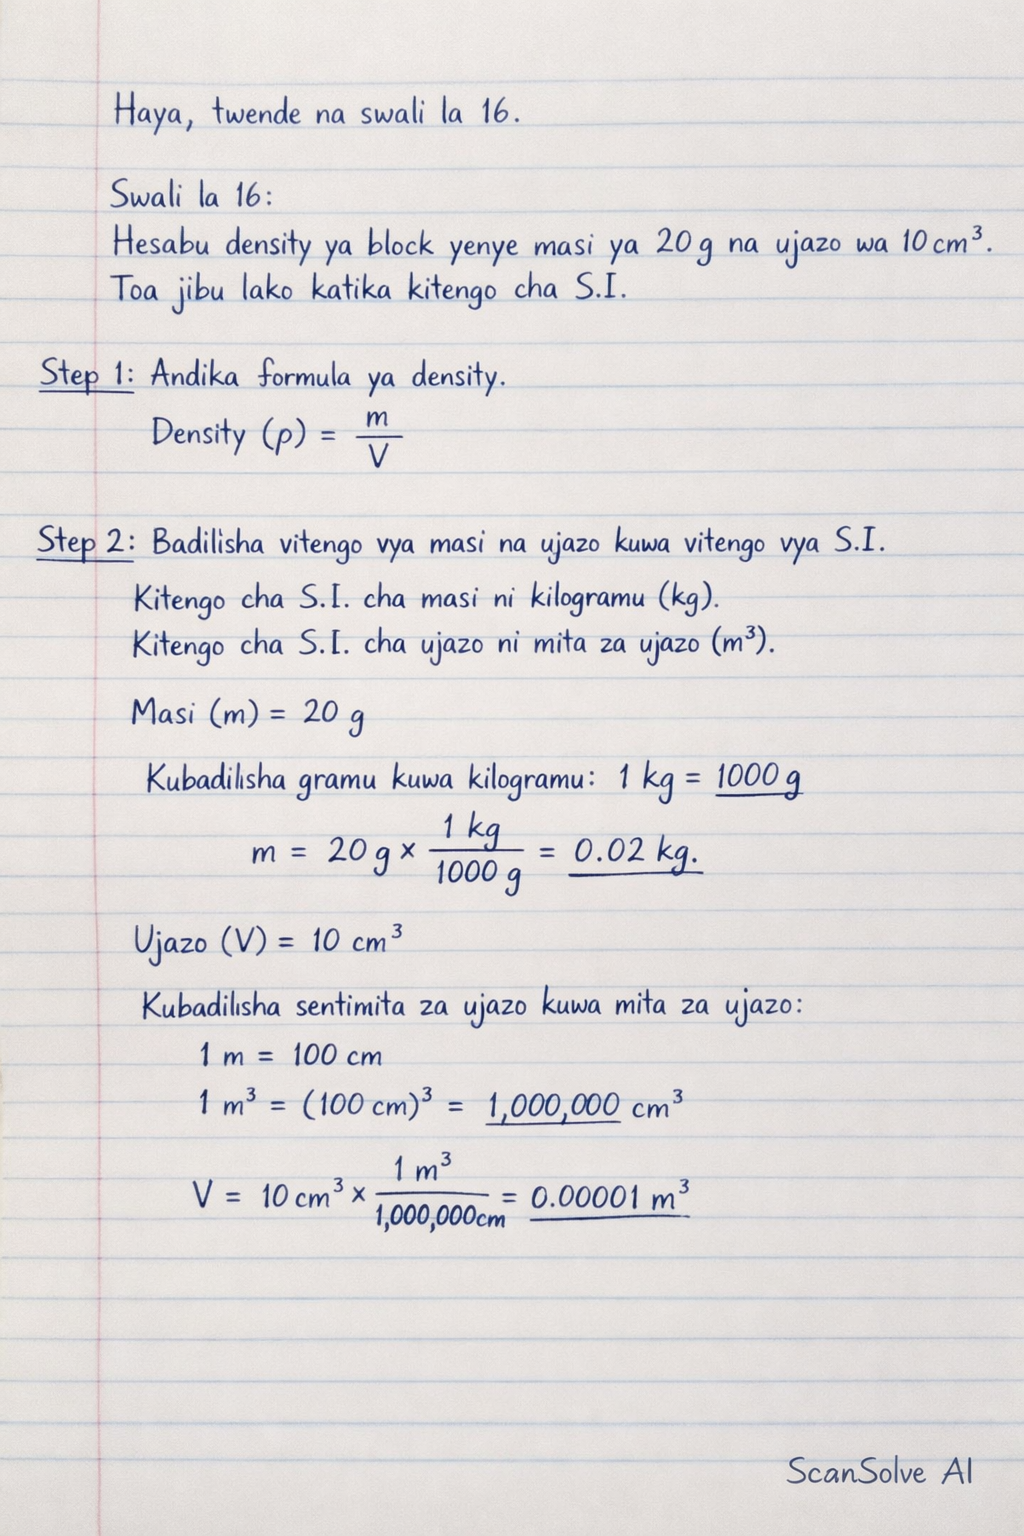 Haya, twende na swali la 16.
Swali la 16:
Hesabu density ya block yenye masi ya 20 g na ujazo wa 10 cm³.
Toa jibu lako katika kitengo cha S.I.
Step 1: Andika formula ya density.
Density (ρ) = m/V
Step 2: Badilisha vitengo vya masi na ujazo kuwa vitengo vya S.I.
Kitengo cha S.I. cha masi ni kilogramu (kg).
Kitengo cha S.I. cha ujazo ni mita za ujazo (m³).
Masi (m) = 20 g
Kubadilisha gramu kuwa kilogramu: 1 kg = 1000 g
m = 20 g × 1 kg/1000 g = 0.02 kg.
Ujazo (V) = 10 cm³
Kubadilisha sentimita za ujazo kuwa mita za ujazo:
1 m = 100 cm
1 m³ = (100 cm)³ = 1,000,000 cm³
V = 10 cm³ × 1 m³/1,000,000cm = 0.00001 m³
ScanSolve AI